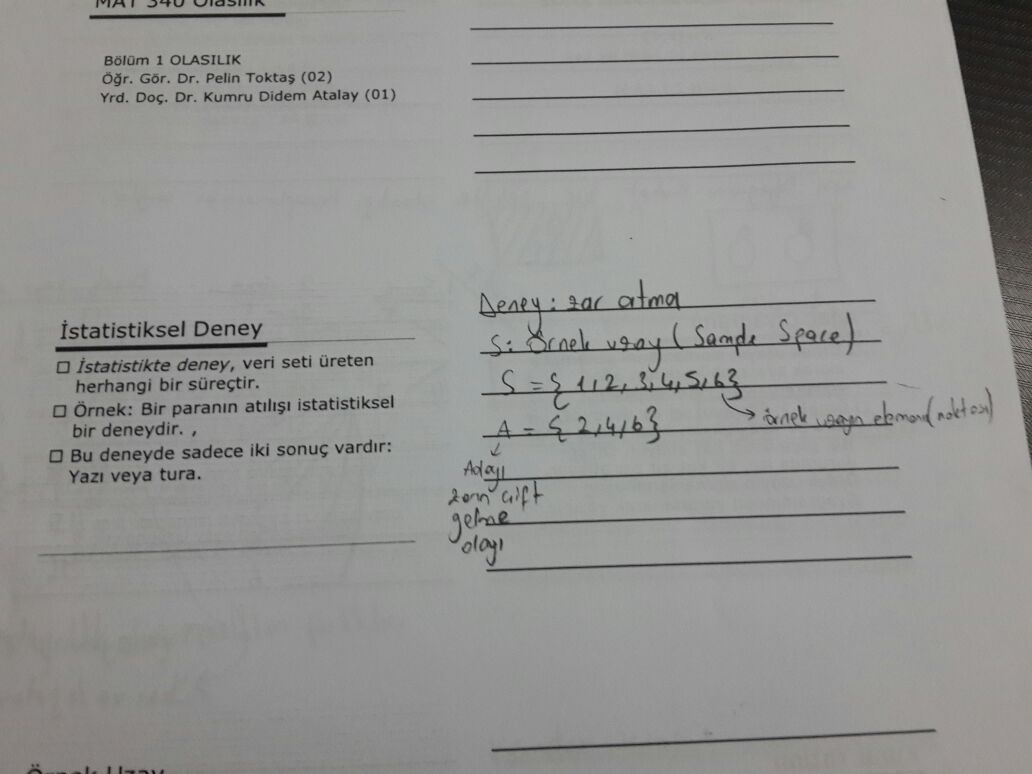 MAT 340 Olasılık
Bölüm 1 OLASILIK
Öğr. Gör. Dr. Pelin Toktaş (02)
Yrd. Doç. Dr. Kumru Didem Atalay (01)
İstatistiksel Deney
□ İstatistikte deney, veri seti üreten
herhangi bir süreçtir.
□ Örnek: Bir paranın atılışı istatistiksel
bir deneydir. ,
□ Bu deneyde sadece iki sonuç vardır:
Yazı veya tura.
Deney: zar atma
S: Örnek uzay (Sample Space)
S = {1,2,3,4,5,6}
örnek uzayın elemanı (noktası)
A = {2,4,6}
A olayı
zarın çift
gelme
olayı
Örnek Uzay